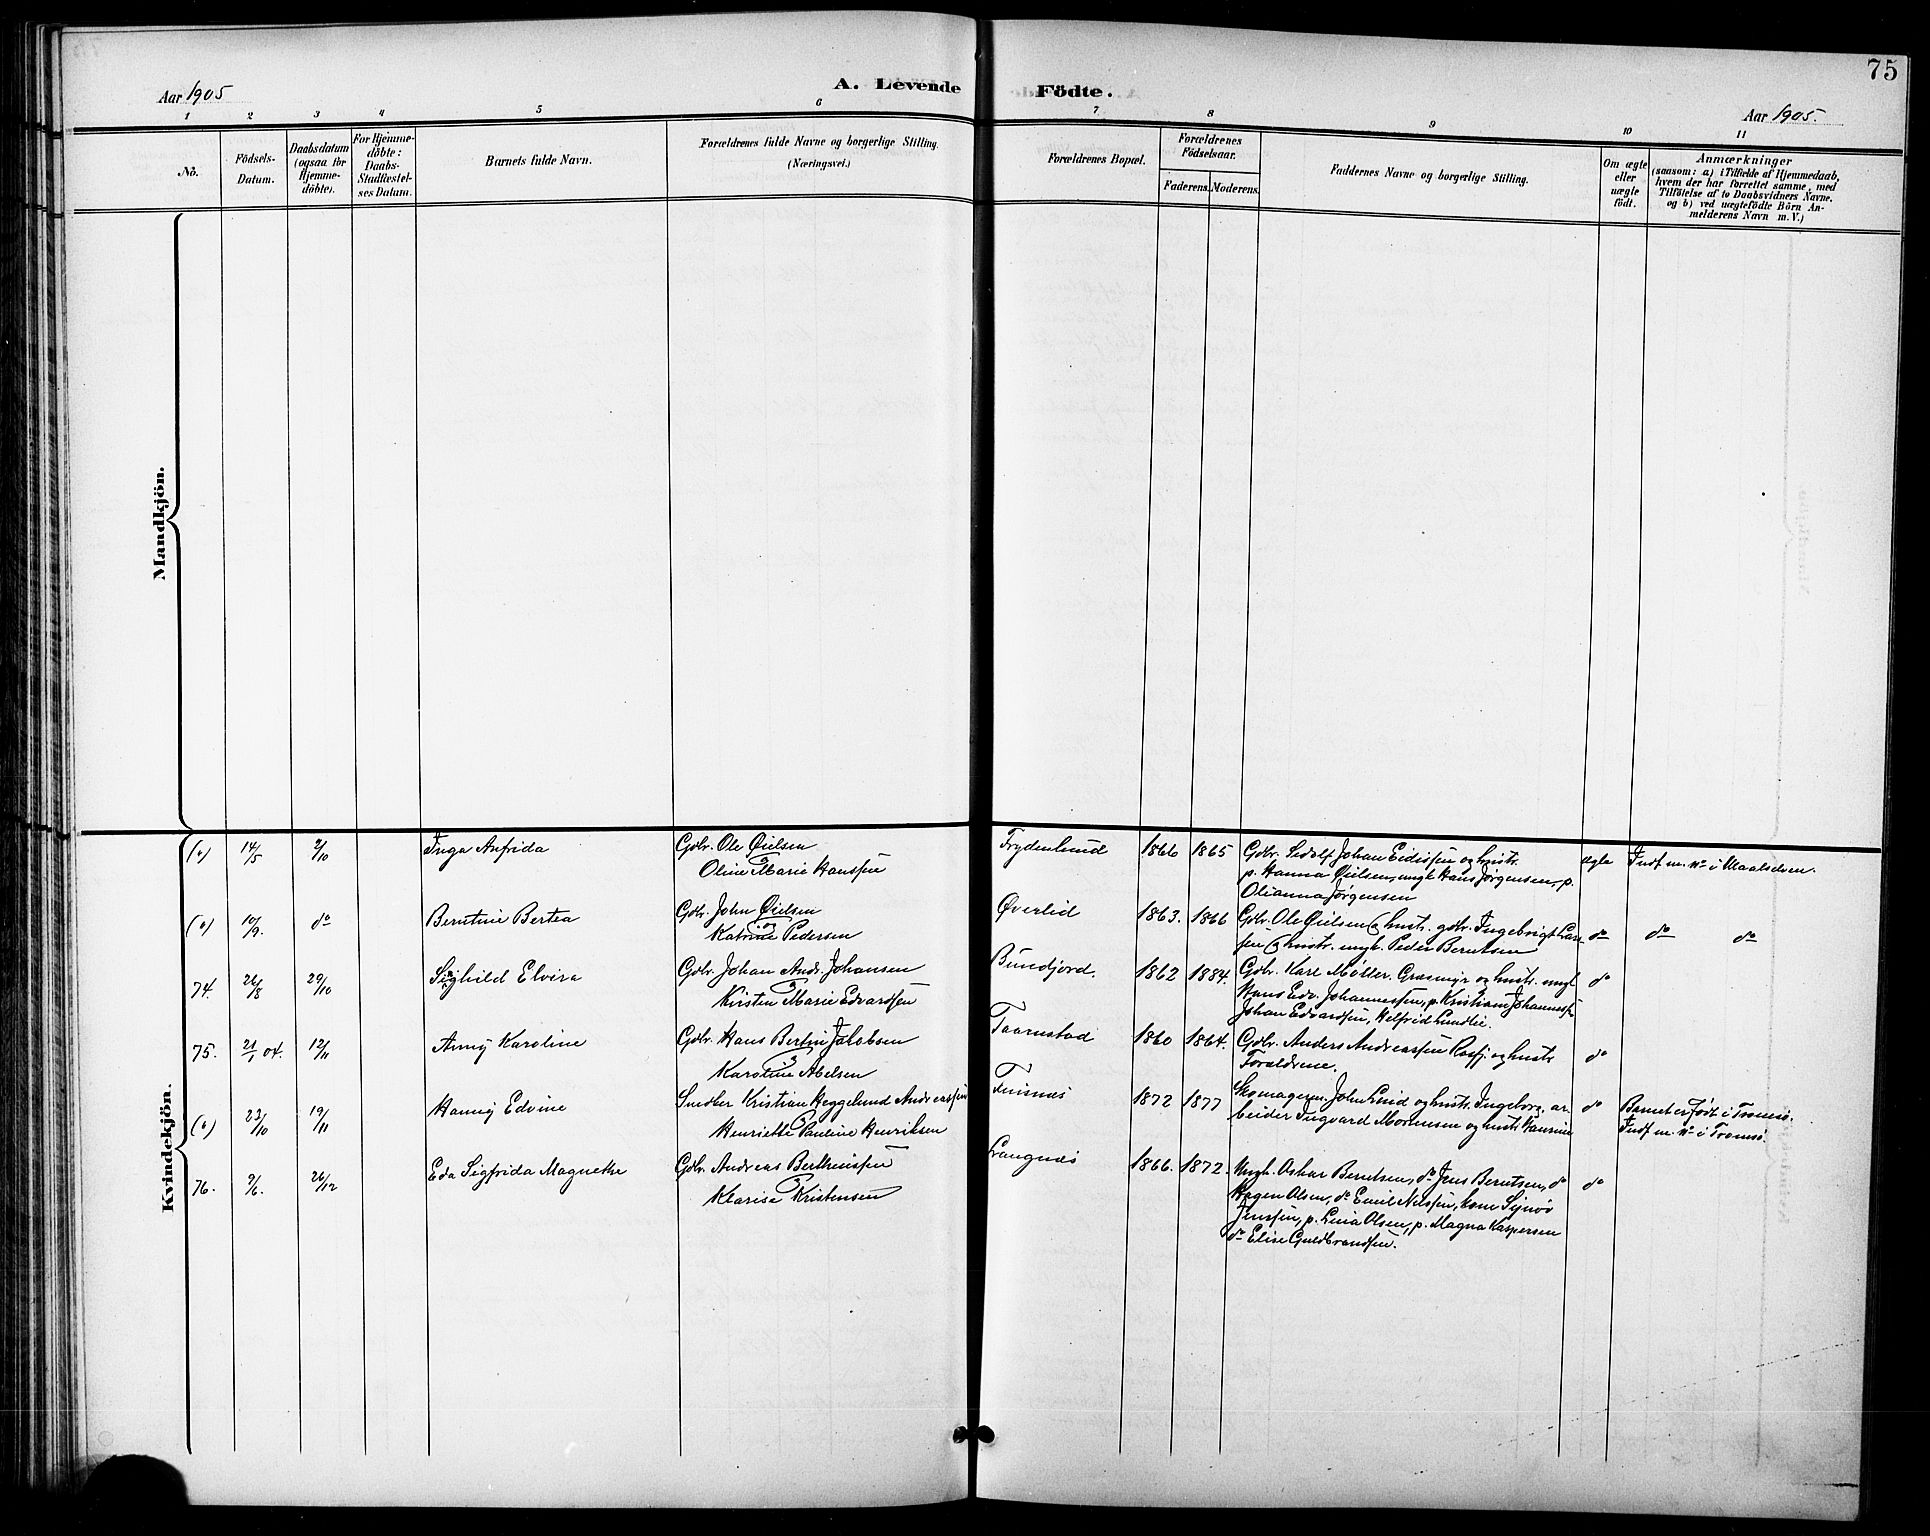 75
Aar 1905
A. Levende Födte.
Aar 1905.
1 2 3 4 5 6 7 8 9 10 11
No.
Födsels-
Datum.
Daabsdatum
(ogsaa for
Hjemme-
döbte).
For Hjemme-
döbte:
Daabs-
Stadfæstel-
ses Datum.
Barnets fulde Navn.
Forældrenes fulde Navne og borgerlige Stilling.
(Næringsvei.)
Forældrenes Bopæl.
Forældrenes
Födselsaar.
Faderens. Moderens.
Faddernes Navne og borgerlige Stilling.
Om ægte
eller
uægte
födt.
Anmærkninger
(saasom: a) i Tilfælde af Hjemmedaab,
hvem der har forrettet samme, med
Tilföielse af to Daabsvidners Navne,
og b) ved uægtefödte Börn An-
melderens Navn m. V.)
Mandkjön.
Kvindekjön.
14/5 2/10 Inga Anfrida Gdbr. Ole Øielsen
Oline Marie Hanssen
Frydenlund 1866 1865 Gdbr. Sedolf Johan Eidissen og hustr.
p. Hanna Øielsen, ungk Hans Jørgensen, p.
Olianna Jørgensen
ægte Indf. m. No i Maalselven.
10/9. do Berntine Bertea Gdbr. John Øielsen
og
Katrine Pedersen
Øverlid 1863. 1866 Gdbr. Ole Øielsen & hustr. gdbr. Ingebrigt Lar-
sen & hustr. ungk. Peder Berntsen
do do do
74. 26/8 29/10 Sighild Elvira Gdbr. Johan Andr. Johansen
Kirsten Marie Edvardsen
Bundjord. 1862 1884. Gdbr. Karl Møller. Græsmyr og hustr. ungk
Hans Edv. Johannessen, p. Kristiane Johannessen
Johan Edvardsen, Helfrid Lundlie.
do
75. 21/1 04. 12/11 Anny Karoline Gdbr. Hans Bertin Jakobsen
Karoline Abelsen
Taarnstad 1860 1864. Gdbr. Anders Andreassen Rosfj. og hustr
Forældrene.
do
22/10 19/11 Hanny Edvine Snedker Kristian Heggelund Andreassen
Henriette Pauline Henriksen
Finsnæs 1872 1877 Skomagerm. John Lind og hustr. Ingeborg. ar-
beider Ingvard Mortensen og hustr Hansine
do Barnet er født i Tromsø.
Indf. m. No i Tromsø.
76. 9/6. 26/12 Eda Sigfrida Magnethe Gdbr. Andreas Bertheussen
Klarise Kristensen
Langnæs 1866. 1872. Ungk. Oskar Berntsen, do Jens Berntsen, do
Hagen Olsen, do Emil Nilssen, kone Synnø
Jenssen, p. Lina Olsen, p. Magna Kaspersen
do Elise Guldbrandsen.
do